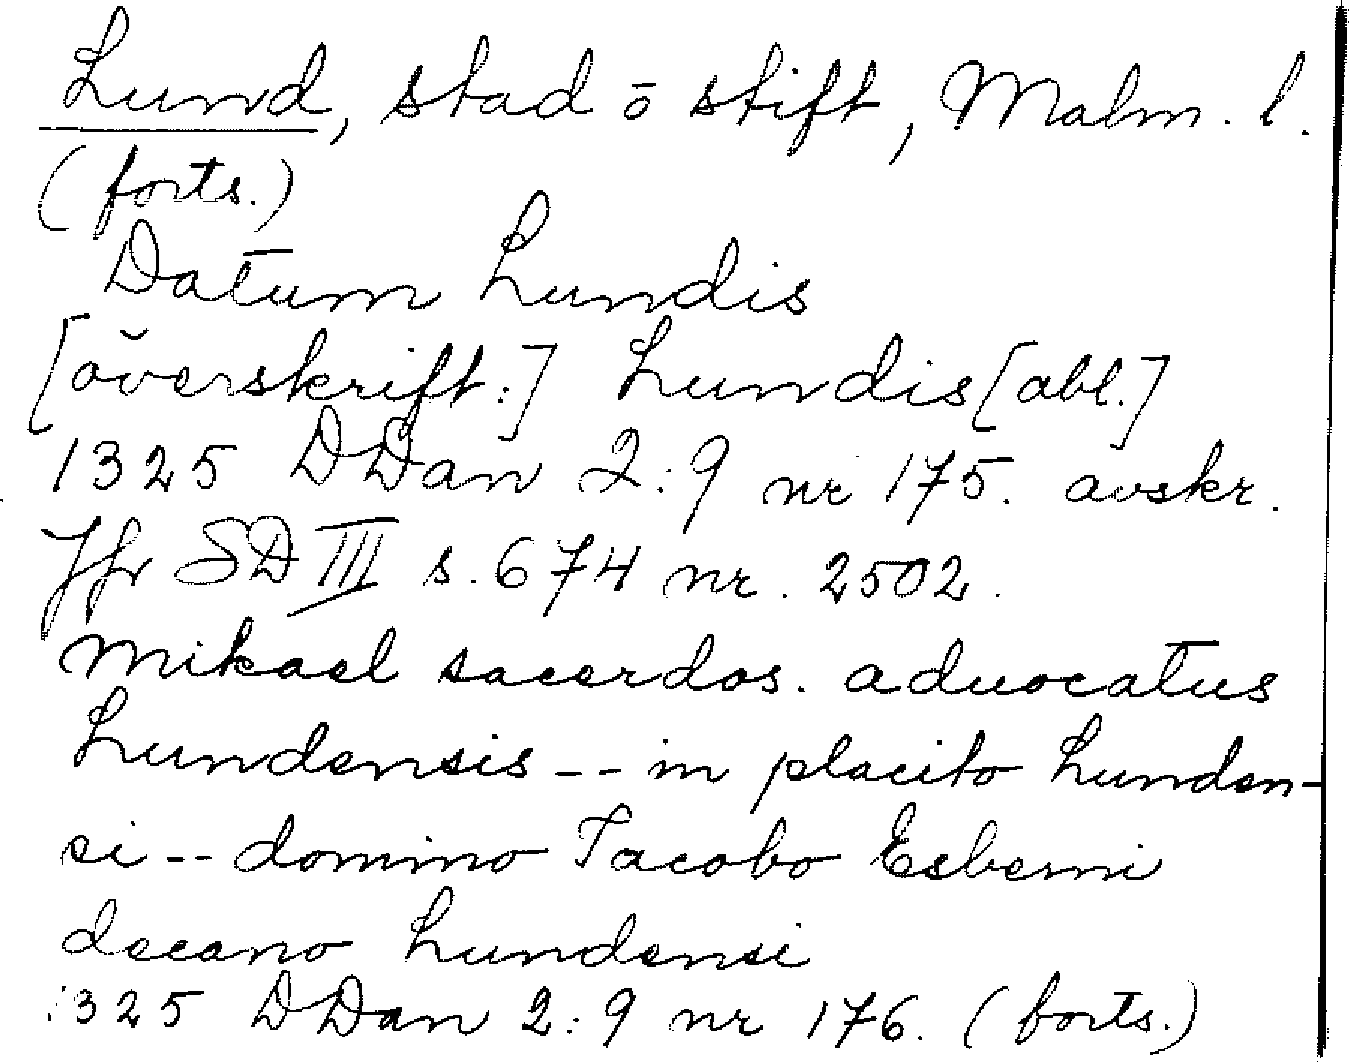 Lund, stad o stift, Malm. l.
(forts.)
Datum Lundis
[överskrift:] Lundis [abl.]
1325 DDan 2:9 nr 175. avskr.
Jfr SD III s. 674 nr. 2502.
Mikael sacerdos. aduocatus
Lundensis -- in placito Lunden-
si -- domino Jacobo Esberni
decano Lundensi
1325 DDan 2:9 nr 176. (forts.)